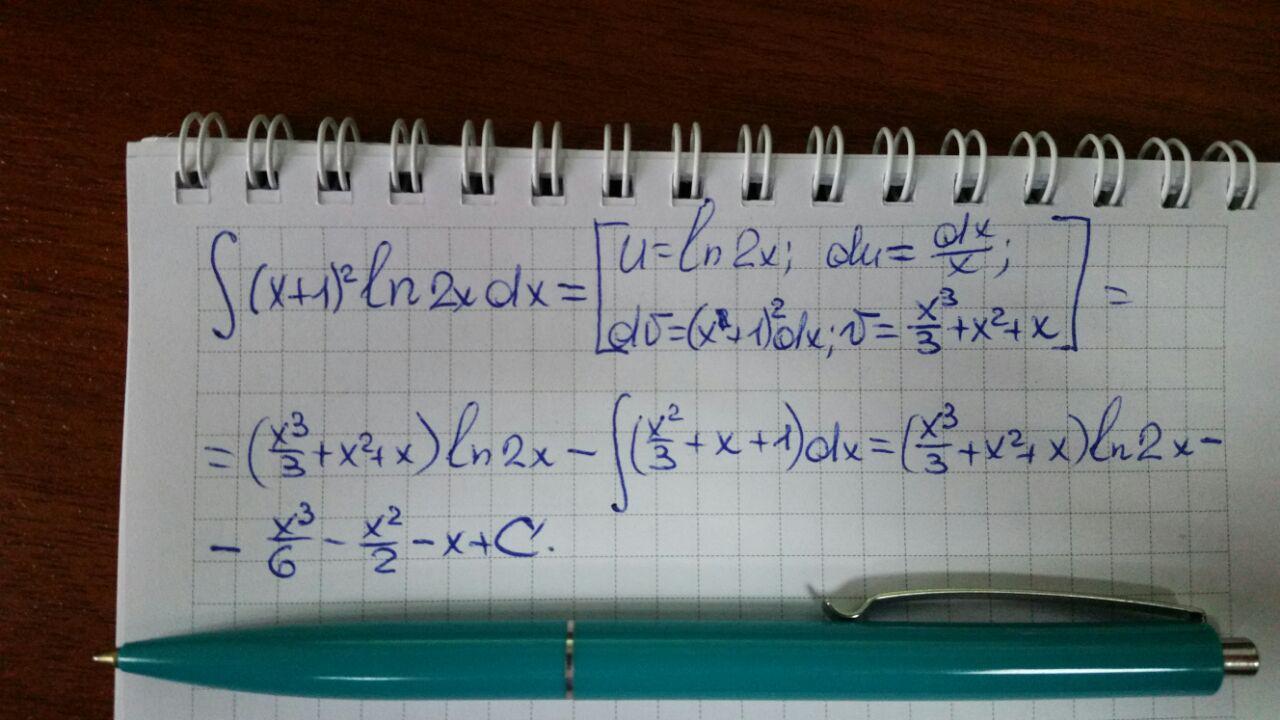 ∫(x+1)² ln 2x dx = [u = ln 2x; du = dx/x;
dv = (x+1)² dx; v = x³/3 + x² + x] =
= (x³/3 + x² + x) ln 2x − ∫(x²/3 + x + 1) dx = (x³/3 + x² + x) ln 2x −
− x³/6 − x²/2 − x + C.